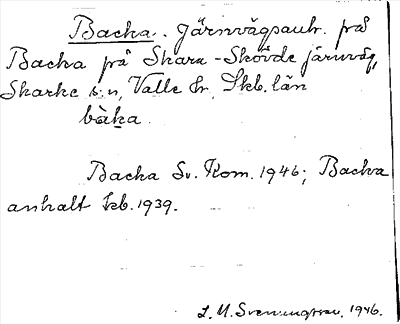 Backa. Järnvägsanh. på
Backa på Skara-Skövde järnväg,
Skarke s:n, Valle hr, Skb. län
bàka.
Backa Sv. Kom. 1946; Backa
anhalt tkb. 1939.
L. M. Svenungsson, 1946.